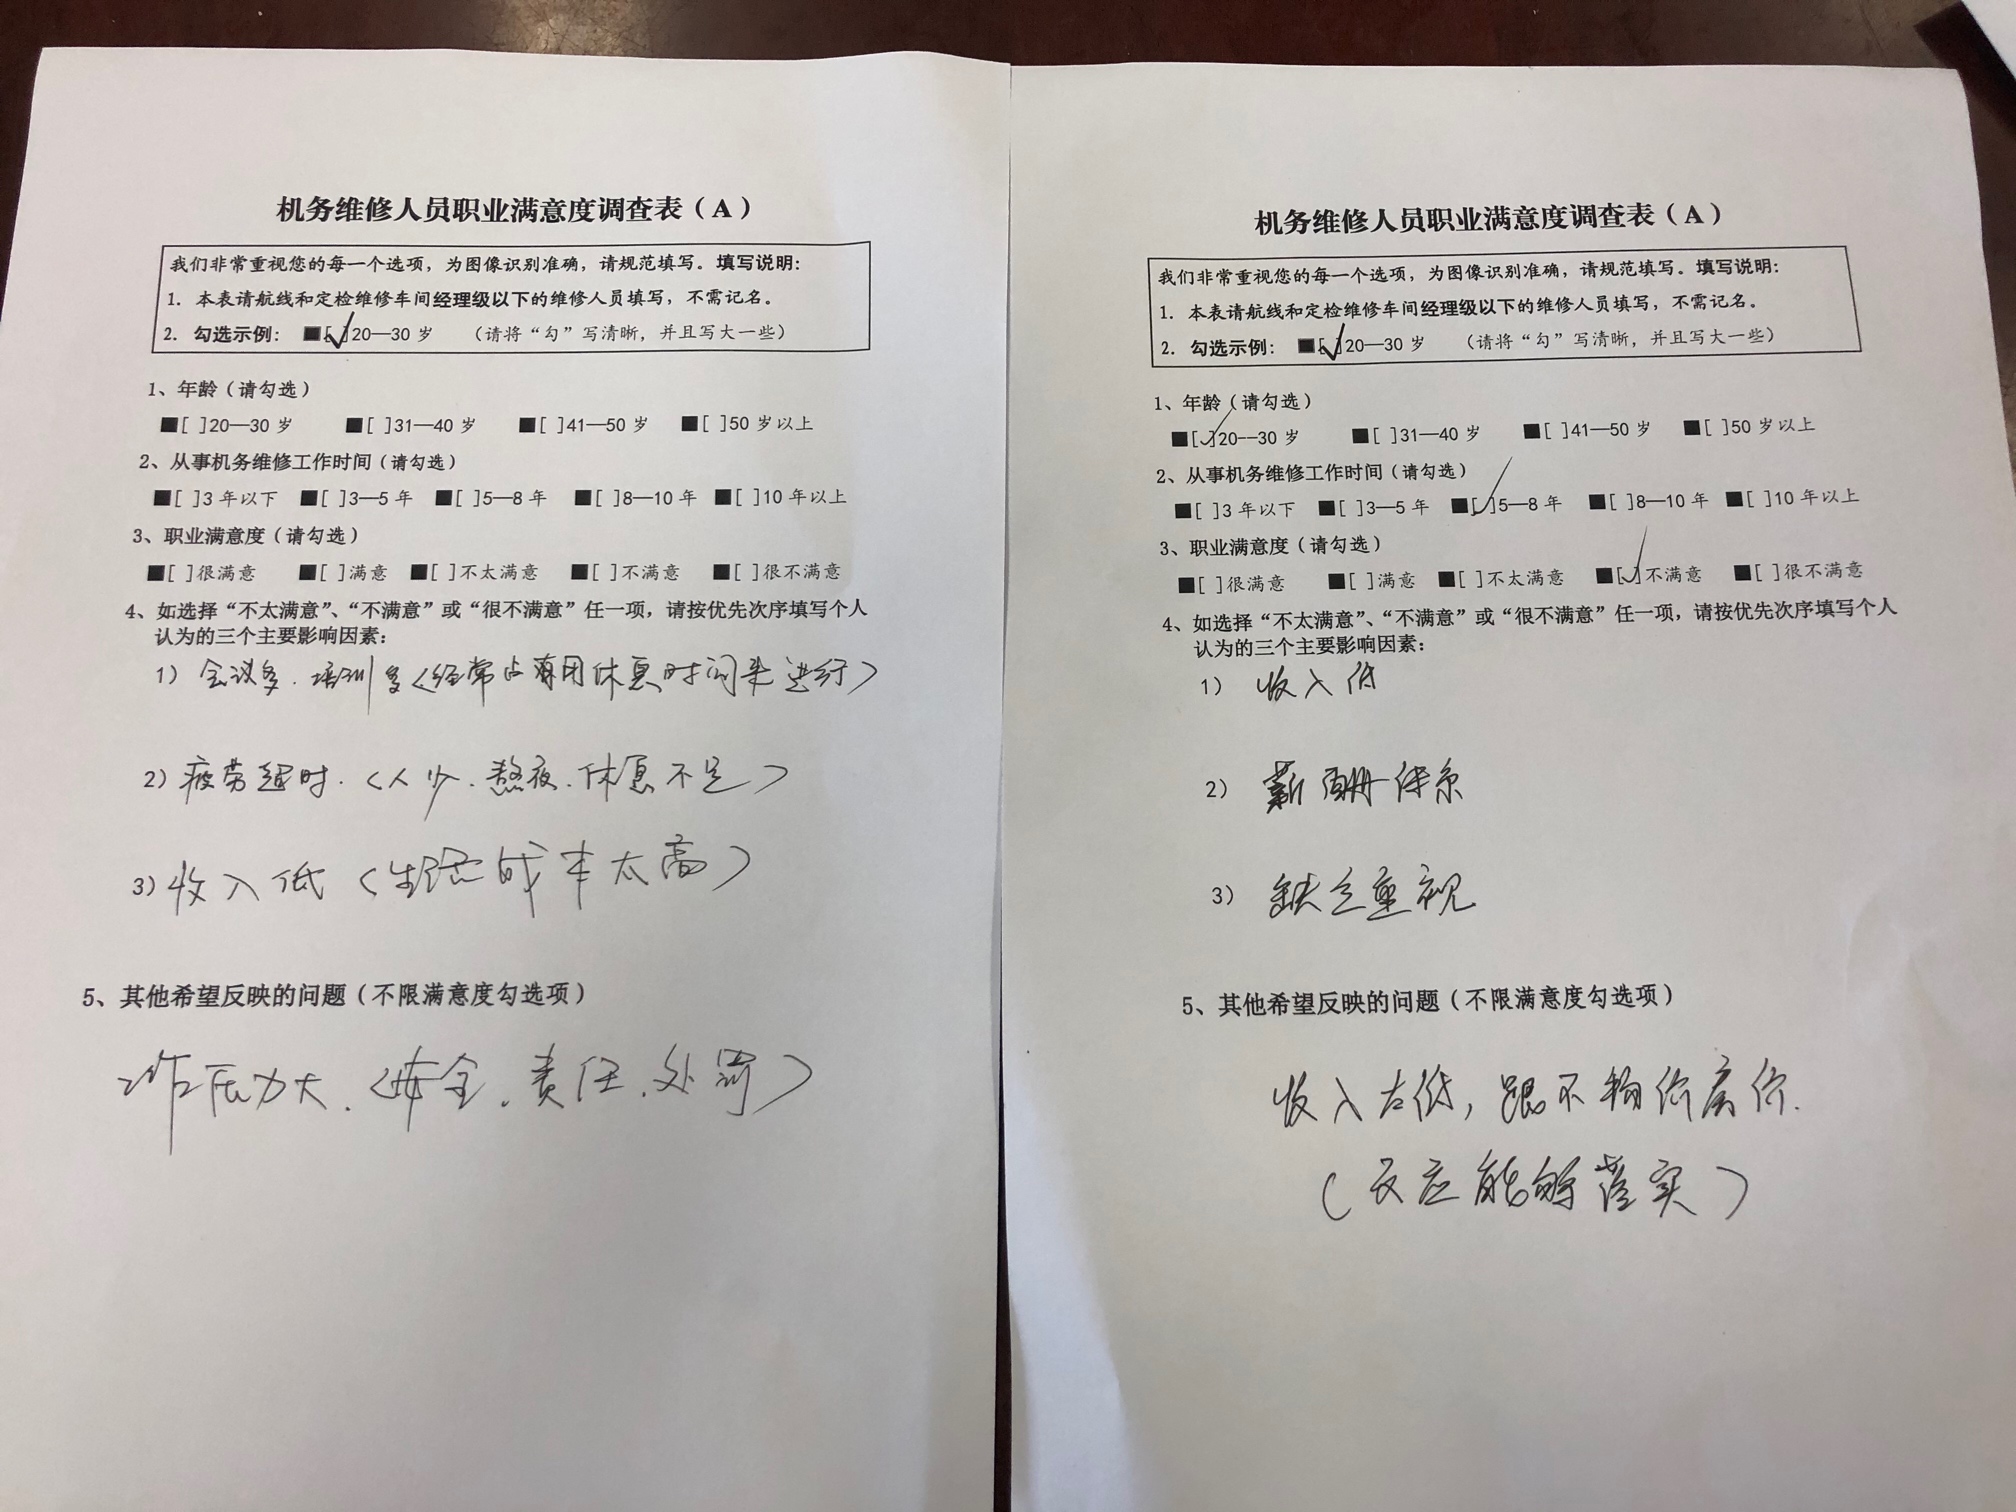 机务维修人员职业满意度调查表（A）
我们非常重视您的每一个选项，为图像识别准确，请规范填写。填写说明：
1. 本表请航线和定检维修车间经理级以下的维修人员填写，不需记名。
2. 勾选示例： ■[✓]20—30 岁 （请将“勾”写清晰，并且写大一些）
1、年龄（请勾选）
■[ ]20—30 岁 ■[ ]31—40 岁 ■[ ]41—50 岁 ■[ ]50 岁以上
2、从事机务维修工作时间（请勾选）
■[ ]3 年以下 ■[ ]3—5 年 ■[ ]5—8 年 ■[ ]8—10 年 ■[ ]10 年以上
3、职业满意度（请勾选）
■[ ]很满意 ■[ ]满意 ■[ ]不太满意 ■[ ]不满意 ■[ ]很不满意
4、如选择“不太满意”、“不满意”或“很不满意”任一项，请按优先次序填写个人
认为的三个主要影响因素：
1）会议多．培训多〈经常占用休息时间来进行〉
2）疲劳超时．〈人少．熬夜．休息不足〉
3）收入低〈生活成本太高〉
5、其他希望反映的问题（不限满意度勾选项）
工作压力大．〈安全．责任．处罚〉
机务维修人员职业满意度调查表（A）
我们非常重视您的每一个选项，为图像识别准确，请规范填写。填写说明：
1. 本表请航线和定检维修车间经理级以下的维修人员填写，不需记名。
2. 勾选示例： ■[✓]20—30 岁 （请将“勾”写清晰，并且写大一些）
1、年龄（请勾选）
■[✓]20--30 岁 ■[ ]31—40 岁 ■[ ]41—50 岁 ■[ ]50 岁以上
2、从事机务维修工作时间（请勾选）
■[ ]3 年以下 ■[ ]3—5 年 ■[✓]5—8 年 ■[ ]8—10 年 ■[ ]10 年以上
3、职业满意度（请勾选）
■[ ]很满意 ■[ ]满意 ■[ ]不太满意 ■[✓]不满意 ■[ ]很不满意
4、如选择“不太满意”、“不满意”或“很不满意”任一项，请按优先次序填写个人
认为的三个主要影响因素：
1） 收入低
2） 薪酬体系
3） 缺乏重视
5、其他希望反映的问题（不限满意度勾选项）
收入太低，跟不物价房价．
（反应能够落实）